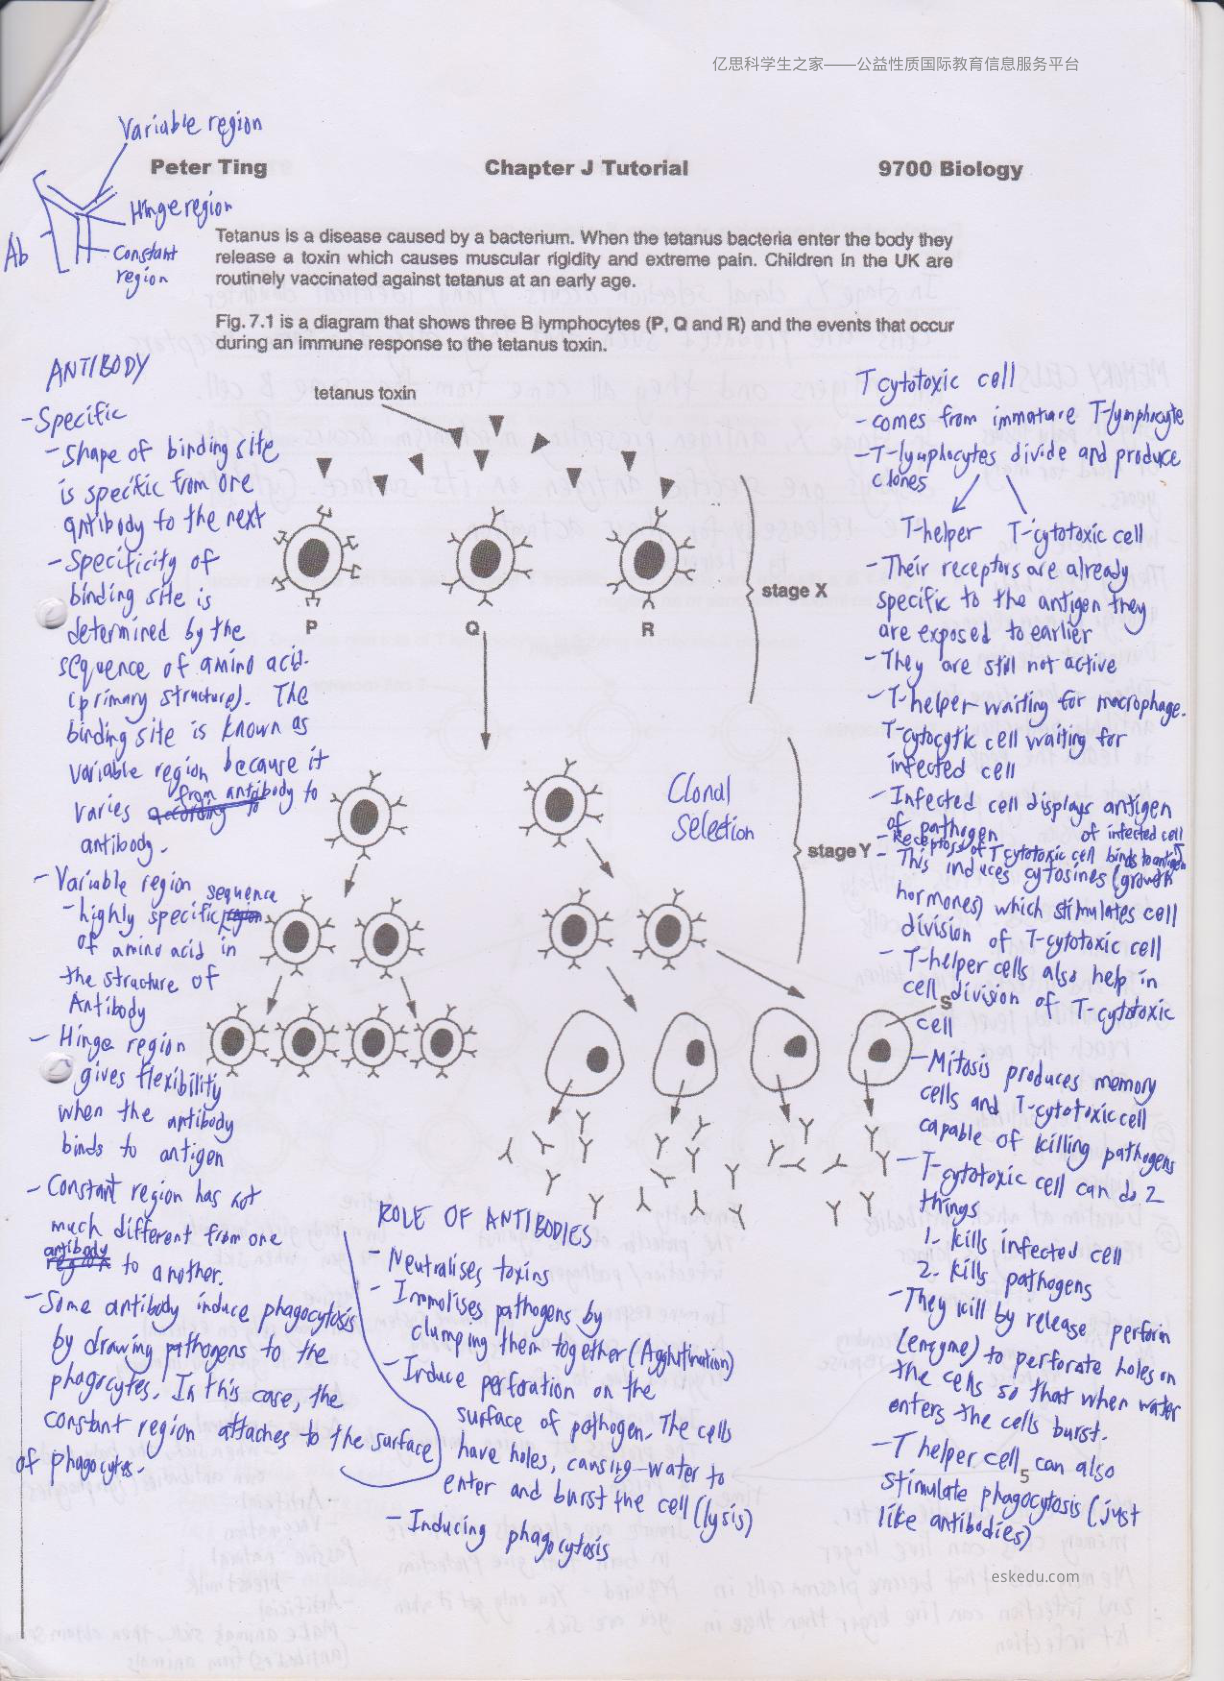 亿思科学生之家——公益性质国际教育信息服务平台
Variable region
Peter Ting
Chapter J Tutorial
9700 Biology
Hinge region
Ab
Constant
region
Tetanus is a disease caused by a bacterium. When the tetanus bacteria enter the body they
release a toxin which causes muscular rigidity and extreme pain. Children in the UK are
routinely vaccinated against tetanus at an early age.
Fig. 7.1 is a diagram that shows three B lymphocytes (P, Q and R) and the events that occur
during an immune response to the tetanus toxin.
tetanus toxin
P
Q
R
stage X
Clonal
selection
stage Y
S
ANTIBODY
- Specific
- Shape of binding site
is specific from one
antibody to the next
- Specificity of
binding site is
determined by the
sequence of amino acid.
(primary structure). The
binding site is known as
variable region because it
from antibody to
varies according to
antibody.
- Variable region
sequence
- highly specific region
of amino acid in
the structure of
Antibody
- Hinge region
gives flexibility
when the antibody
binds to antigen
- Constant region has not
much different from one
antibody
region to another.
- Some antibody induce phagocytosis
by drawing pathogens to the
phagocytes. In this case, the
constant region attaches to the surface
of phagocytes.
ROLE OF ANTIBODIES
- Neutralises toxins
- Immolises pathogens by
clumping them together (Agglutination)
- Induce perforation on the
surface of pathogen. The cells
have holes, causing water to
enter and burst the cell (lysis)
- Inducing phagocytosis
T cytotoxic cell
- comes from immature T-lymphocyte
- T-lymphocytes divide and produce
clones
T-helper T-cytotoxic cell
- Their receptors are already
specific to the antigen they
are exposed to earlier
- They are still not active
- T-helper waiting for macrophage.
T-cytocytic cell waiting for
infected cell
- Infected cell displays antigen
of pathogen
of infected cell
- Receptors of T cytotoxic cell binds to antigen
- This induces cytosines (growth
hormones) which stimulates cell
division of T-cytotoxic cell
- T-helper cells also help in
cell division of T-cytotoxic
cell
- Mitosis produces memory
cells and T-cytotoxic cell
capable of killing pathogens
- T-cytotoxic cell can do 2
things
1. kills infected cell
2. kills pathogens
- They kill by release perforin
(enzyme) to perforate holes on
the cells so that when water
enters the cells burst.
- T helper cell can also
5
stimulate phagocytosis (just
like antibodies)
eskedu.com